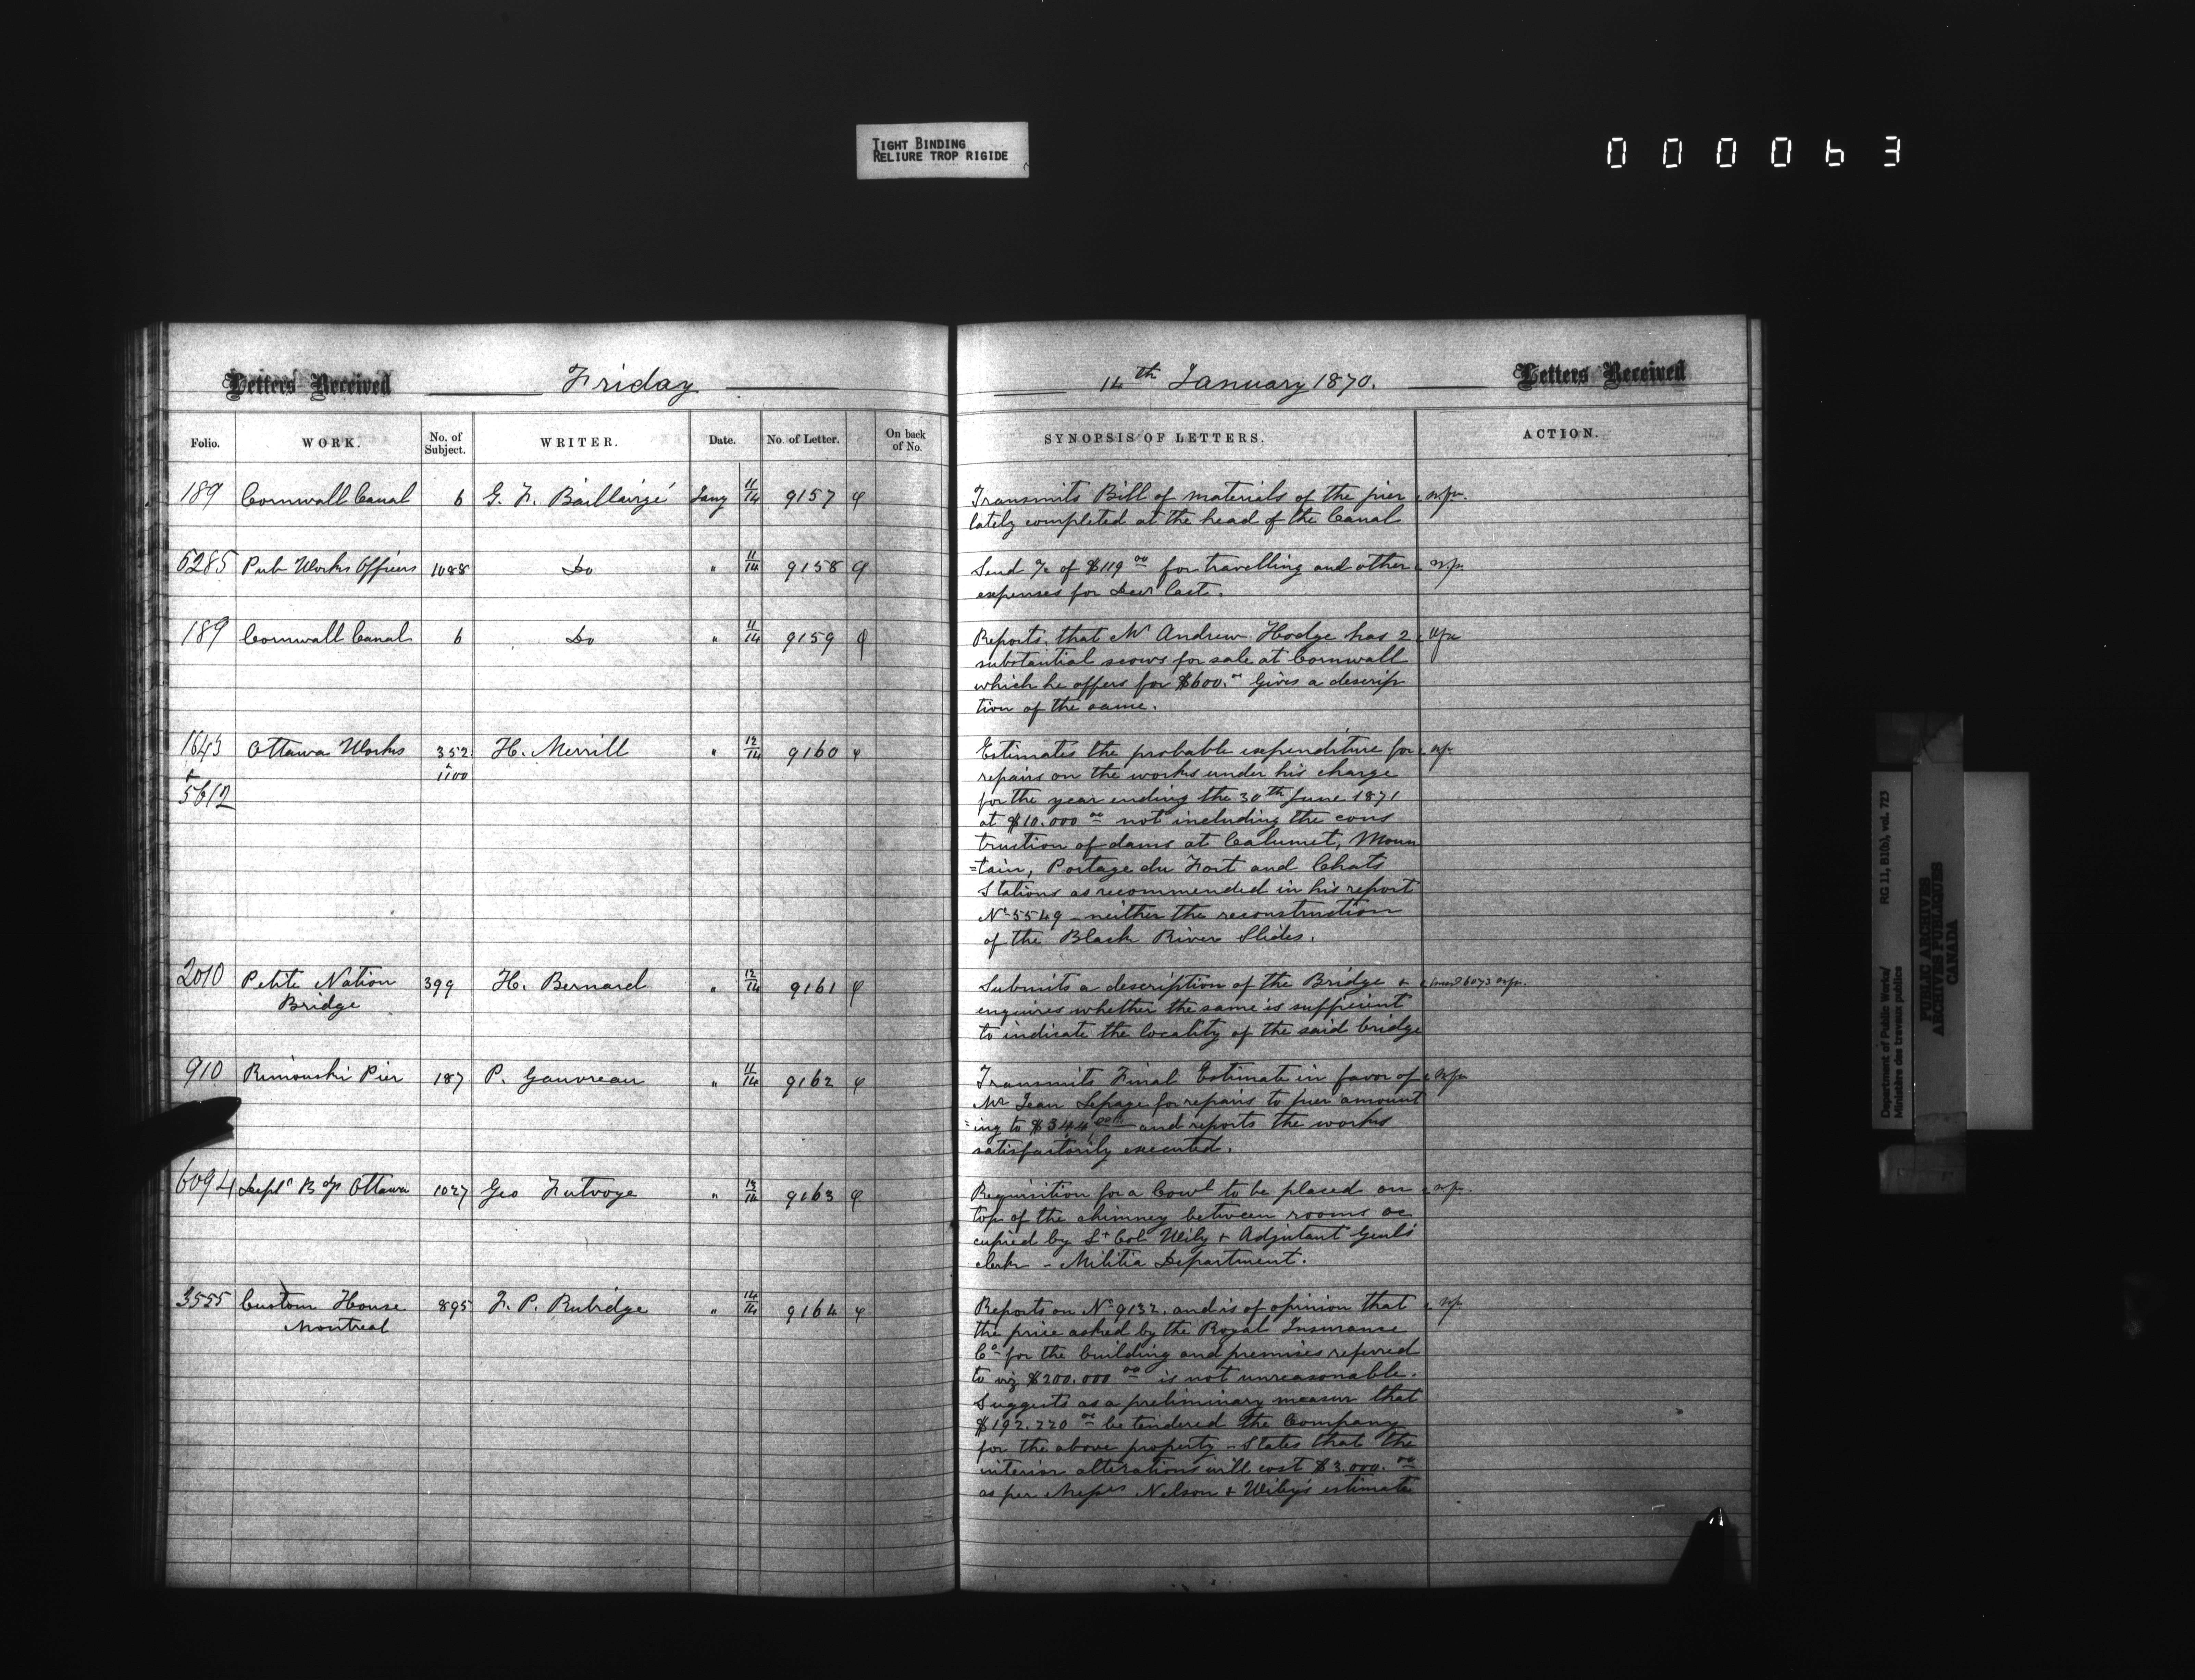 TIGHT BINDING
RELIURE TROP RIGIDE
000063
Letters Received Friday
14th January 1870. Letters Received
Folio. WORK. No. of Subject. WRITER. Date. No. of Letter. On back of No.
SYNOPSIS OF LETTERS. ACTION.
189 Cornwall Canal 6 G. F. Baillairgé Jany 11/14 9157
Transmits Bill of materials of the pier
lately completed at the head of the Canal
5285 Pub Works Officers 1088 Do " 11/14 9158
Send a/c of $119 00 for travelling and other
expenses for Decr last.
189 Cornwall Canal 6 Do " 11/14 9159
Reports that Mr Andrew Hodge has 2
substantial scows for sale at Cornwall
which he offers for $600.00 Gives a descrip
tion of the same.
1643 Ottawa Works 352 H. Merrill " 12/14 9160
+ 1100
5612
Estimates the probable expenditure for
repairs on the works under his charge
for the year ending the 30th June 1871
at $10.000 00 not including the cons
truction of dams at Calumet, Moun
=tain, Portage du Fort and Chats
Stations as recommended in his report
No 5549 - neither the reconstruction
of the Black River Slides.
2010 Petite Nation 399 H. Bernard " 12/14 9161
Bridge
Submits a description of the Bridge + 6073
enquires whether the same is sufficient
to indicate the locality of the said bridge
910 Rimouski Pier 187 P. Gauvreau " 11/14 9162
Transmits Final Estimate in favor of
Mr Jean Lepage for repairs to pier amount
=ing to $344 and reports the works
satisfactorily executed.
6094 Deptl Bdgs Ottawa 1027 Geo Futvoye " 13/14 9163
Requisition for a Cowl to be placed on
top of the chimney between rooms oc
cupied by Lt Col Wily + Adjutant Genl's
clerk - Militia Department.
3555 Custom House 895 F. P. Rubidge " 14/14 9164
Montreal
Reports on No 9132. and is of opinion that
the price asked by the Royal Insurance
Co for the building and premises referred
to viz $200.000 00 is not unreasonable.
Suggests as a preliminary measur that
$192.220 00 be tendered the Company
for the above property - States that the
interior alterations will cost $3.000.00
as per Messrs Nelson & Wily's estimate
Department of Public Works/ RG 11, B1(b), vol. 723
Ministère des travaux publics
PUBLIC ARCHIVES
ARCHIVES PUBLIQUES
CANADA